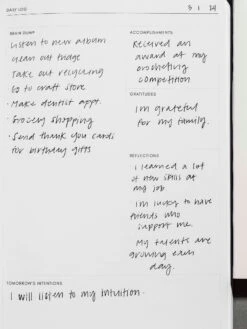 DAILY LOG
5 | 1 | 24
BRAIN DUMP
Listen to new album
Clean out fridge
Take out recycling
Go to craft store
· Make dentist appt.
· Grocery shopping
· Send thank you cards
for birthday gifts
ACCOMPLISHMENTS
Received an
award at my
crocheting
competition
GRATITUDES
I'm grateful
for my family.
REFLECTIONS
I learned a lot
of new skills at
my job.
I'm lucky to have
friends who
support me.
My talents are
growing each
day.
TOMORROW'S INTENTIONS
I will listen to my intuition.